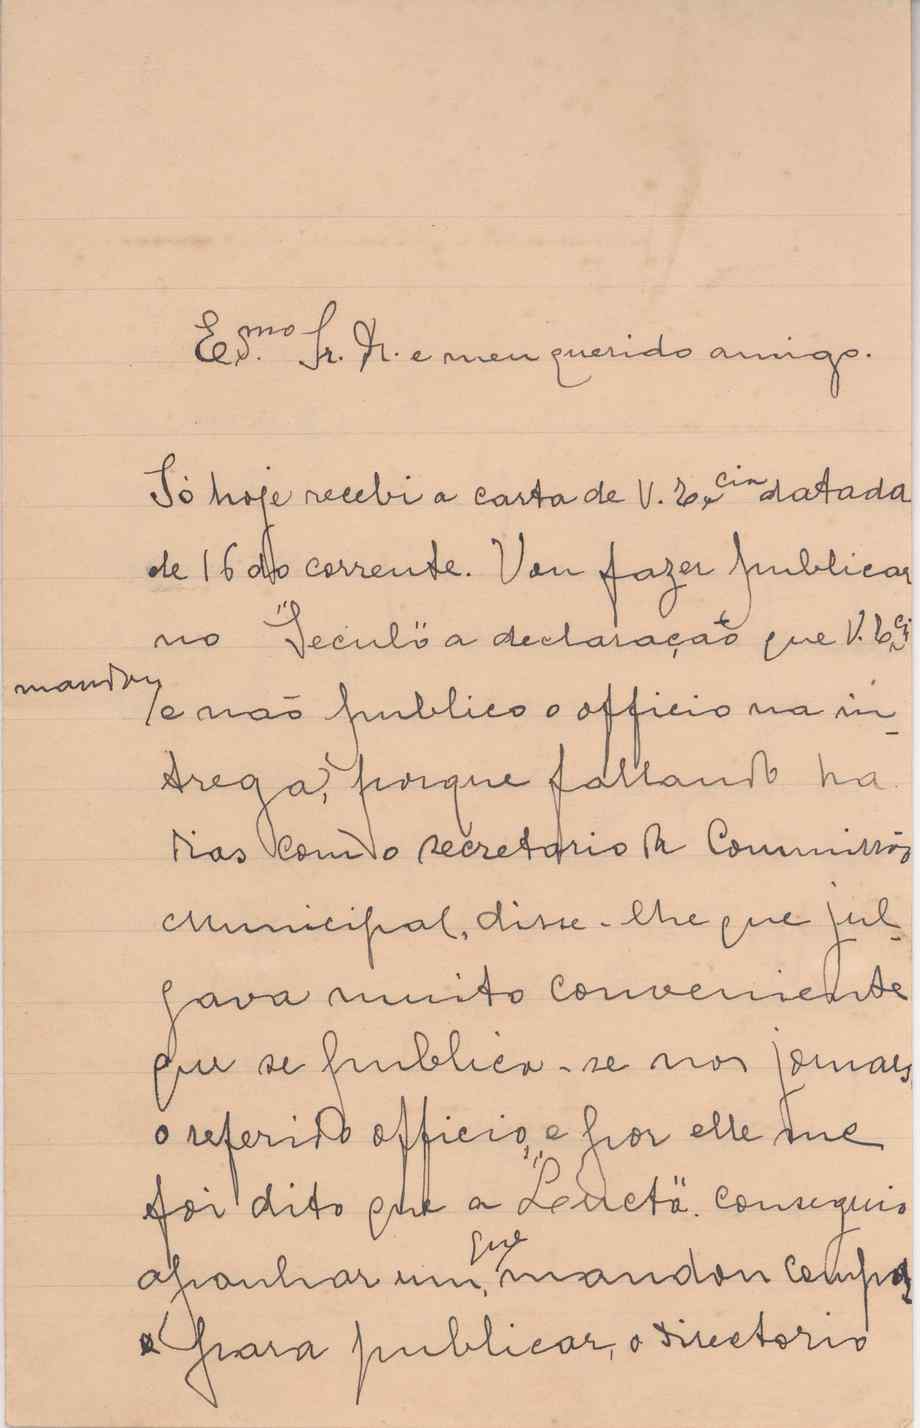 Ex.mo Sr. Dr. e meu querido amigo.
Só hoje recebi a carta de V. Ex.cia datada
de 16 do corrente. Vou fazer publicar
no "Seculo" a declaração que V. Ex.ci
mandou
e não publico o officio na in-
trega, porque fallando ha
dias com o secretario da Commissão
Municipal, disse-lhe que jul-
gava muito conveniente
que se publica-se nos jornaes
o referido officio, e por elle me
foi dito que a "Lucta" conseguio
apanhar um, que mandou compor
para publicar, o directorio